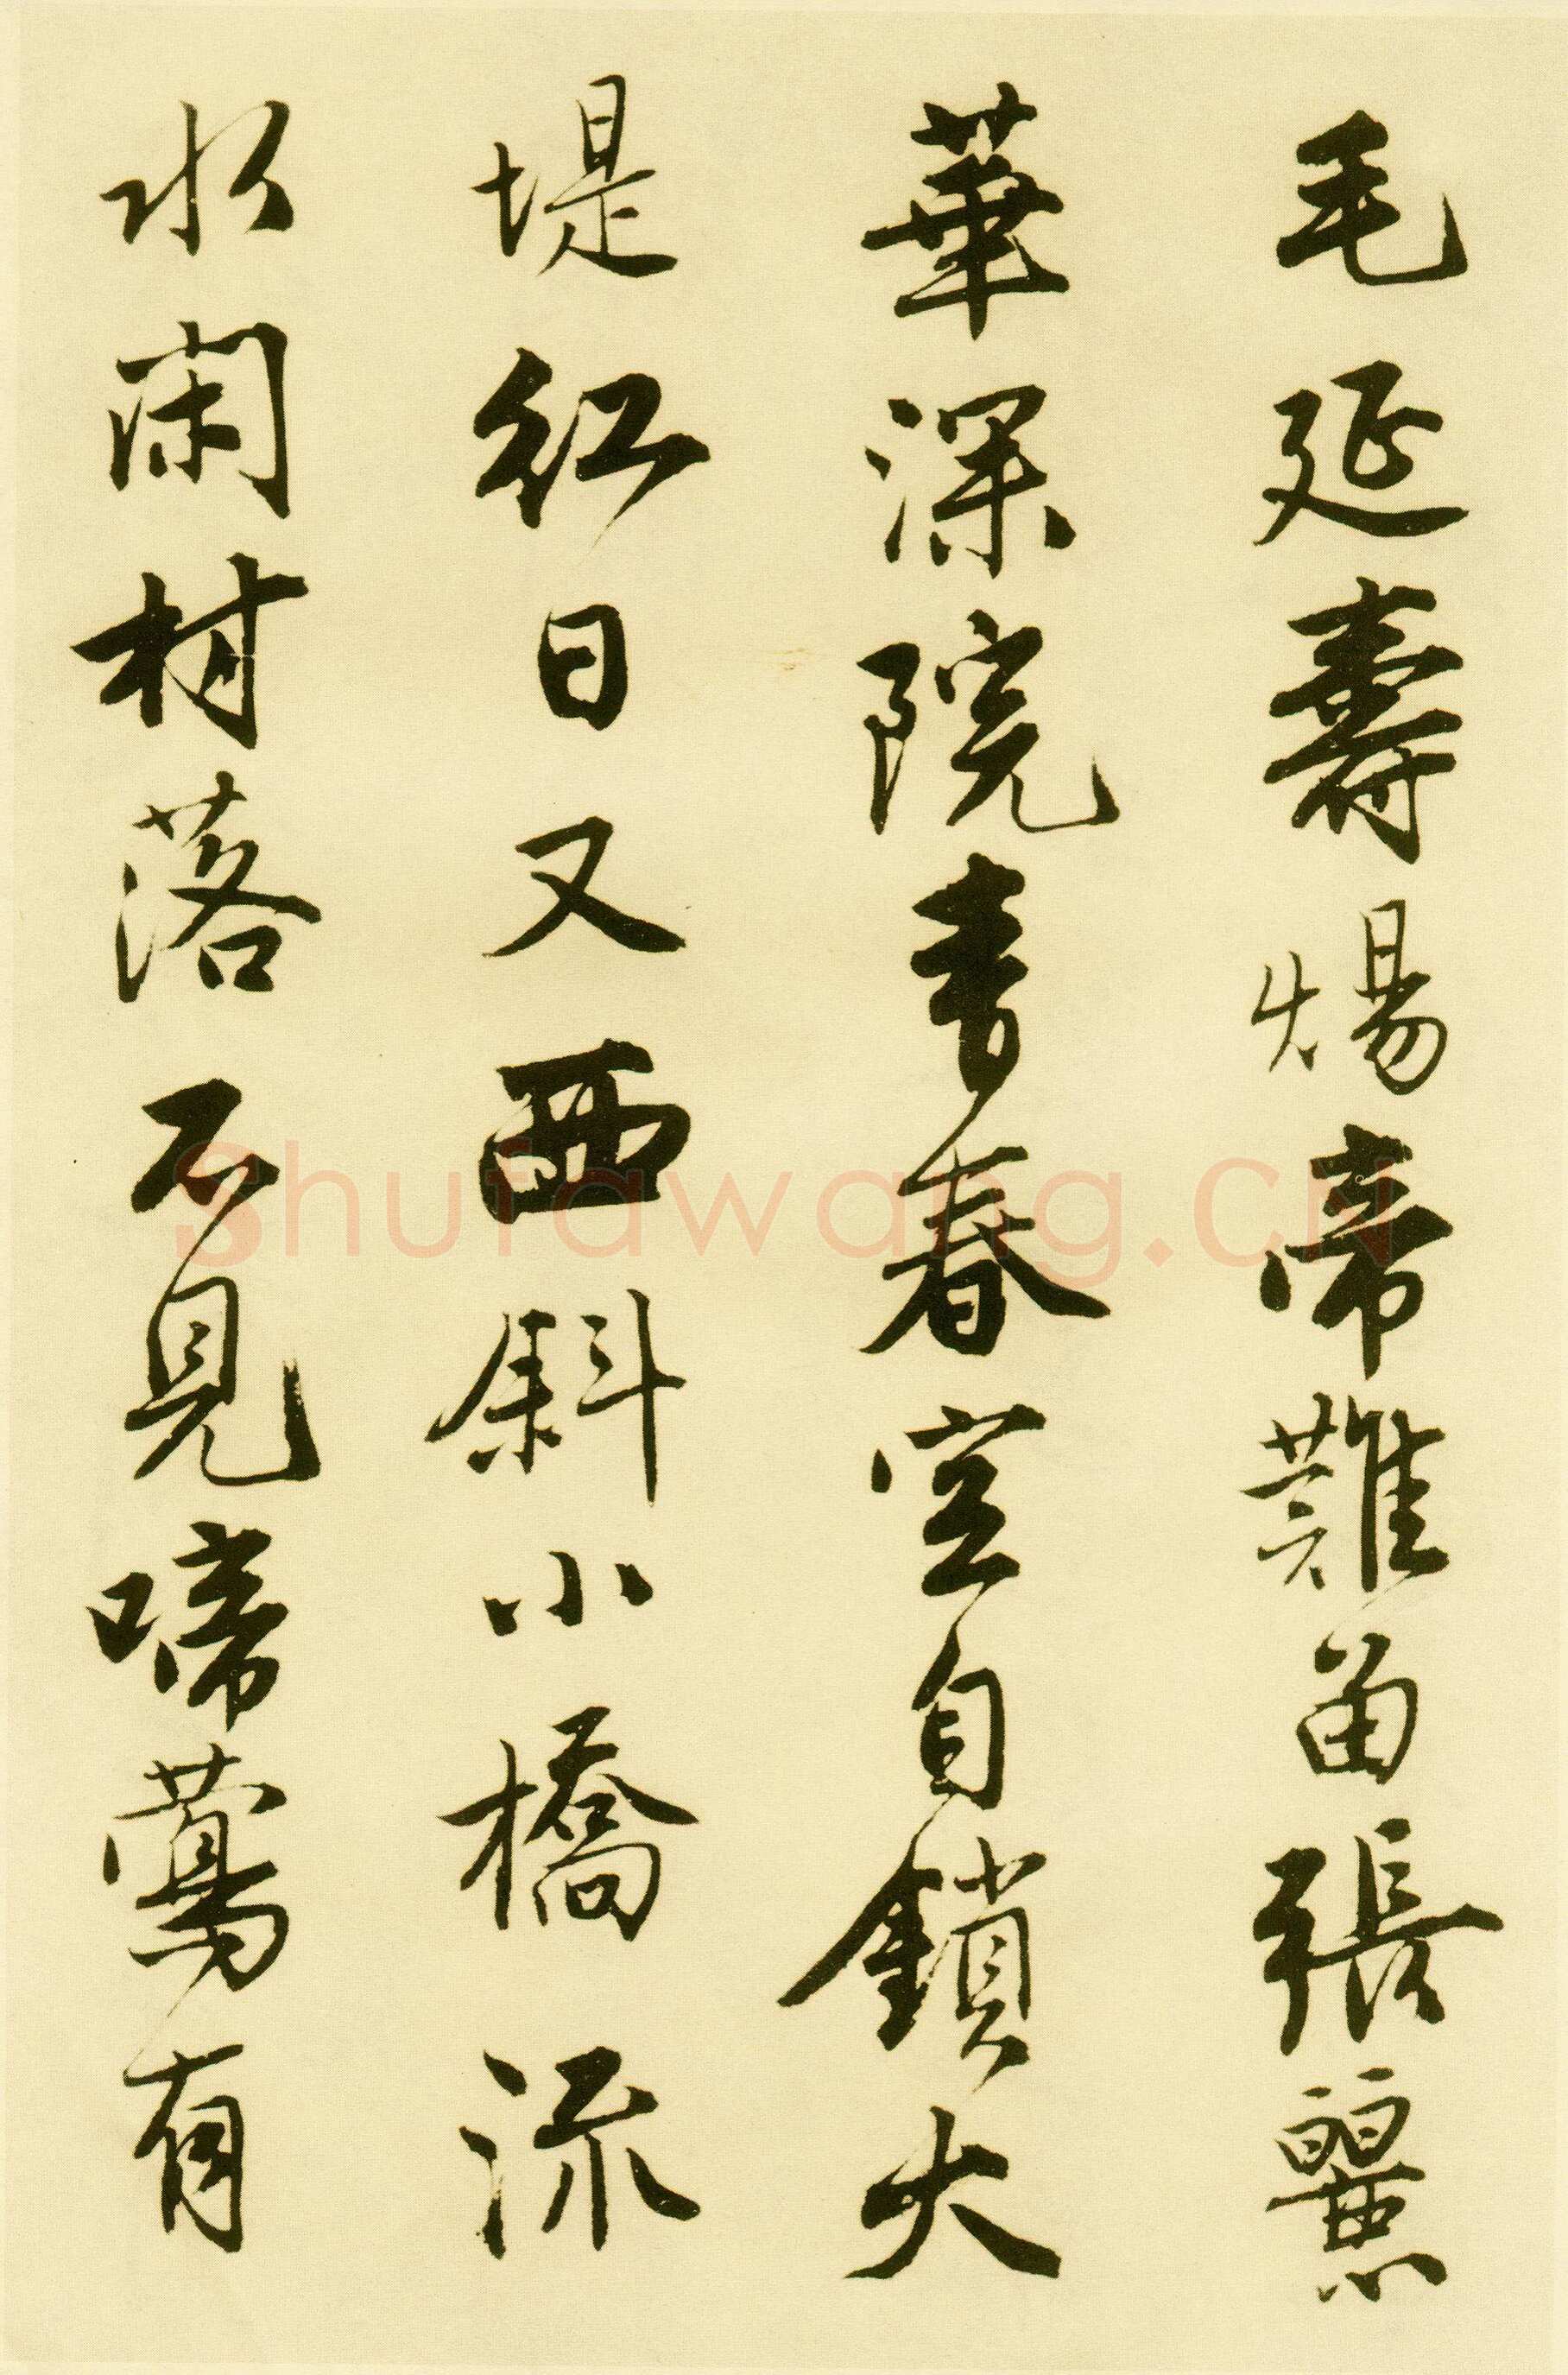 毛延壽煬帝難留張麗
華深院青春空自鎖大
堤紅日又西斜小橋流
水閑村落不見啼鶯有
Shufawang.CN